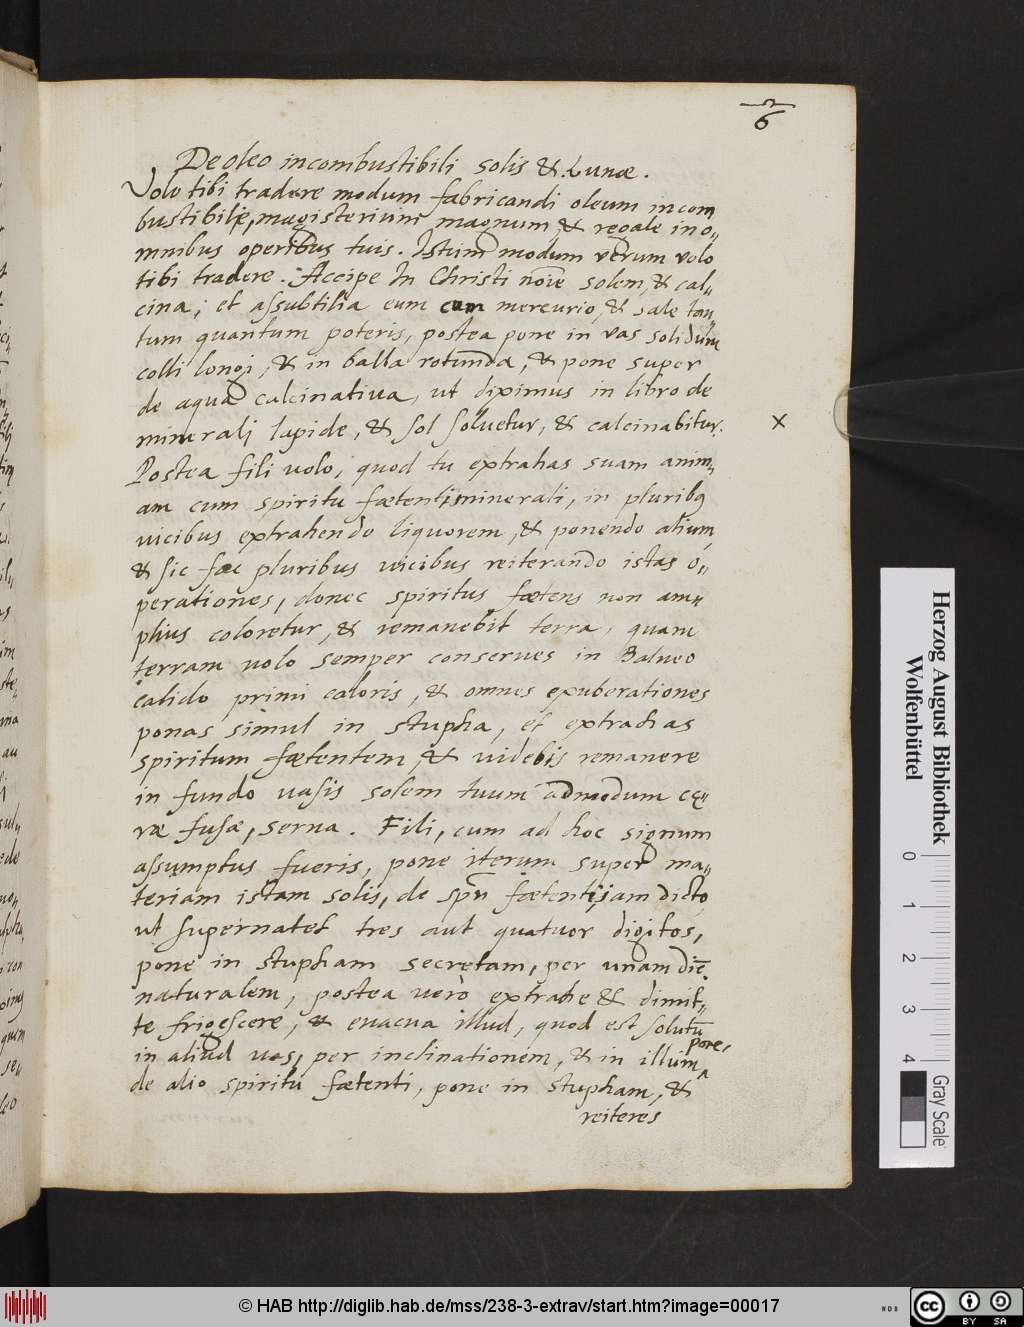 6
De oleo incombustibili solis & Lunæ.
Volo tibi tradere modum fabricandi oleum incom
bustibile, magisterium magnum & regale in o„
mnibus operibus tuis. Istum modum verum volo
tibi tradere. Accipe In Christi noīe solem, & cal„
cina, et assubtilia eum cum mercurio, & sale tan
tum quantum poteris, postea pone in vas solidum
colli longi, & in balla rotunda, & pone super
de aqua calcinativa, ut diximus in libro de
minerali lapide, & sol soluetur, & calcinabitur.
x
Postea fili uolo, quod tu extrahas suam anim„
am cum spiritu fœtenti minerali, in pluribq
uicibus extrahendo liquorem, & ponendo alium,
& sic fac pluribus uicibus reiterando istas o„
perationes, donec spiritus fœtens non am„
plius coloretur, & remanebit terra, quam
terram uolo semper conserues in Balneo
calido primi caloris, & omnes exuberationes
ponas simul in stupha, et extrahas
spiritum fœtentem, & uidebis remanere
in fundo uasis solem tuum admodum cę„
ræ fusæ, serua. Fili, cum ad hoc signum
assumptus fueris, pone iterum super ma„
teriam istam solis, de spū fœtenti, iam dicto,
ut supernatet tres aut quatuor digitos,
pone in stupham secretam, per unam diē
naturalem, postea uero extrahe & dimit„
te frigescere, & euacua illud, quod est solutū
in aliud uas, per inclinationem, & in illum pone,
de alio spiritu fœtenti, pone in stupham, &
reiteres
Herzog August Bibliothek
Wolfenbüttel
0 1 2 3 4
Gray Scale
© HAB http://diglib.hab.de/mss/238-3-extrav/start.htm?image=00017
cc BY SA